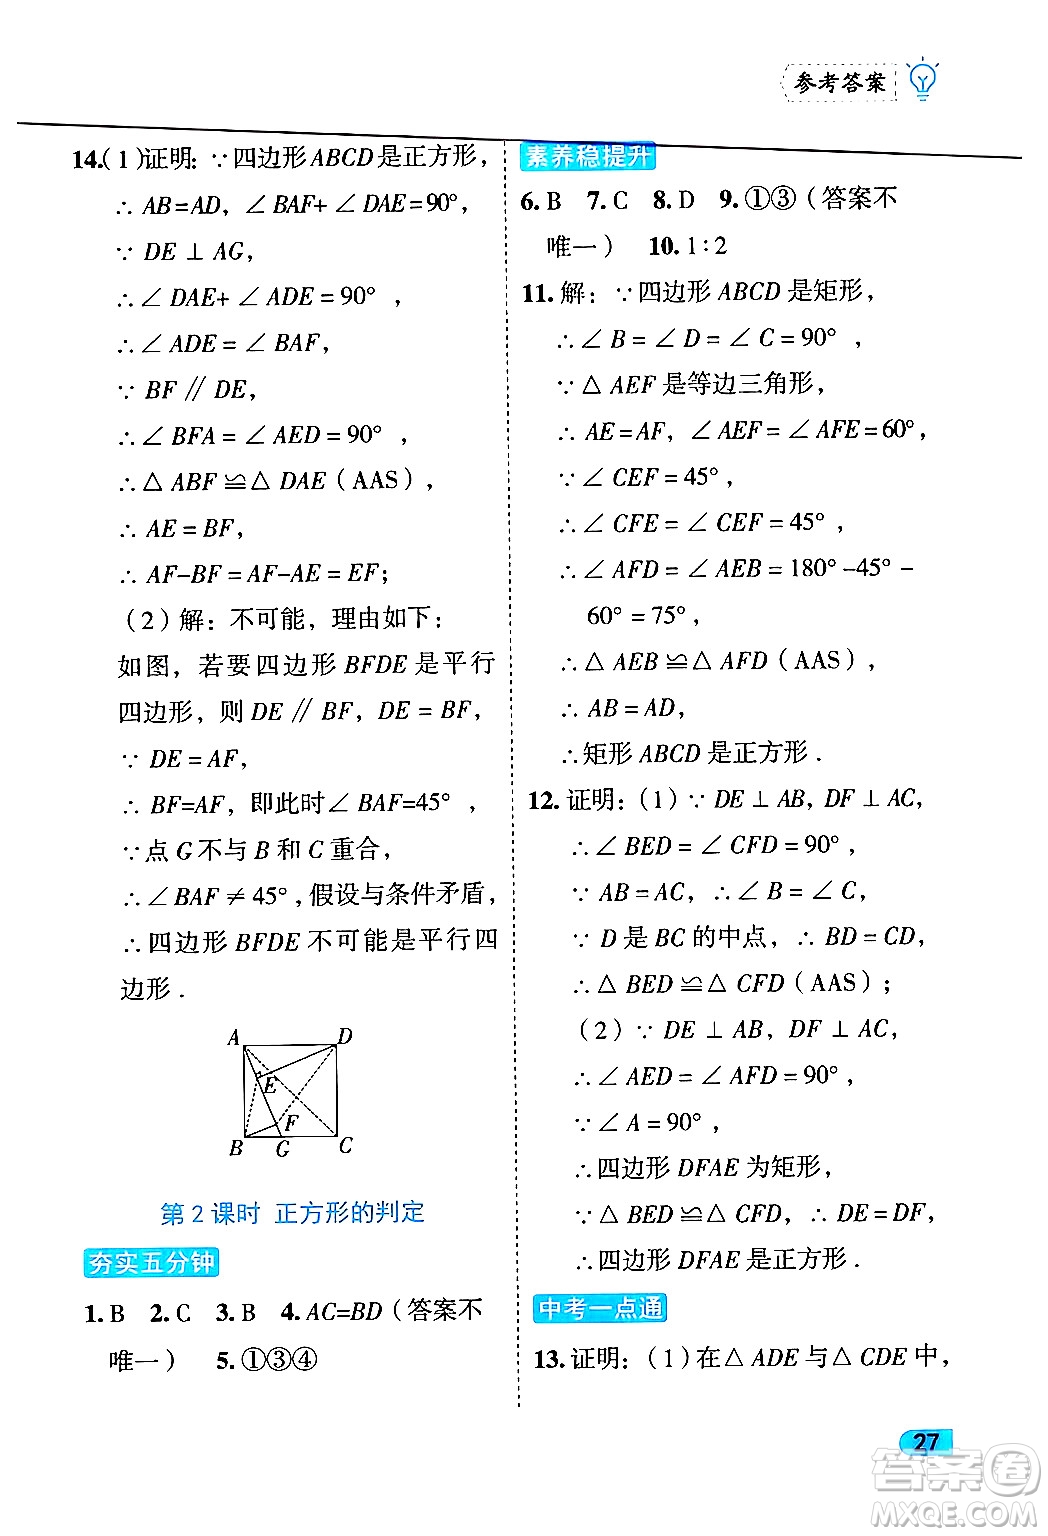 参考答案
14.(1)证明:∵四边形ABCD是正方形,
∴ AB=AD,∠BAF+∠DAE=90°,
∵ DE⊥AG,
∴∠DAE+∠ADE=90°,
∴∠ADE=∠BAF,
∵ BF∥DE,
∴∠BFA=∠AED=90°,
∴△ABF≌△DAE(AAS),
∴ AE=BF,
∴ AF-BF=AF-AE=EF;
(2)解:不可能,理由如下:
如图,若要四边形BFDE是平行
四边形,则DE∥BF,DE=BF,
∵ DE=AF,
∴ BF=AF,即此时∠BAF=45°,
∵点G不与B和C重合,
∴∠BAF≠45°,假设与条件矛盾,
∴四边形BFDE不可能是平行四
边形.
A D
E
F
B G C
第2课时 正方形的判定
夯实五分钟
1.B 2.C 3.B 4.AC=BD(答案不
唯一) 5.①③④
素养稳提升
6.B 7.C 8.D 9.①③(答案不
唯一) 10.1:2
11.解:∵四边形ABCD是矩形,
∴∠B=∠D=∠C=90°,
∵△AEF是等边三角形,
∴ AE=AF,∠AEF=∠AFE=60°,
∵∠CEF=45°,
∴∠CFE=∠CEF=45°,
∴∠AFD=∠AEB=180°-45°-
60°=75°,
∴△AEB≌△AFD(AAS),
∴ AB=AD,
∴矩形ABCD是正方形.
12.证明:(1)∵DE⊥AB,DF⊥AC,
∴∠BED=∠CFD=90°,
∵ AB=AC,∴∠B=∠C,
∵ D是BC的中点,∴ BD=CD,
∴△BED≌△CFD(AAS);
(2)∵ DE⊥AB,DF⊥AC,
∴∠AED=∠AFD=90°,
∵∠A=90°,
∴四边形DFAE为矩形,
∵△BED≌△CFD,∴ DE=DF,
∴四边形DFAE是正方形.
中考一点通
13.证明:(1)在△ADE与△CDE中,
27
答案圈
MXQE.COM